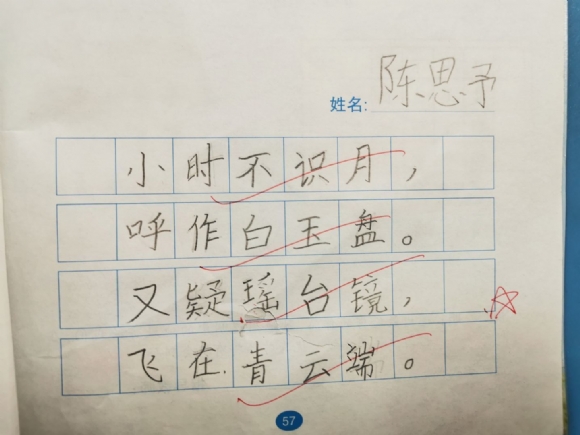 姓名: 陈思予
小时不识月，
呼作白玉盘。
又疑瑶台镜，
飞在青云端。
57